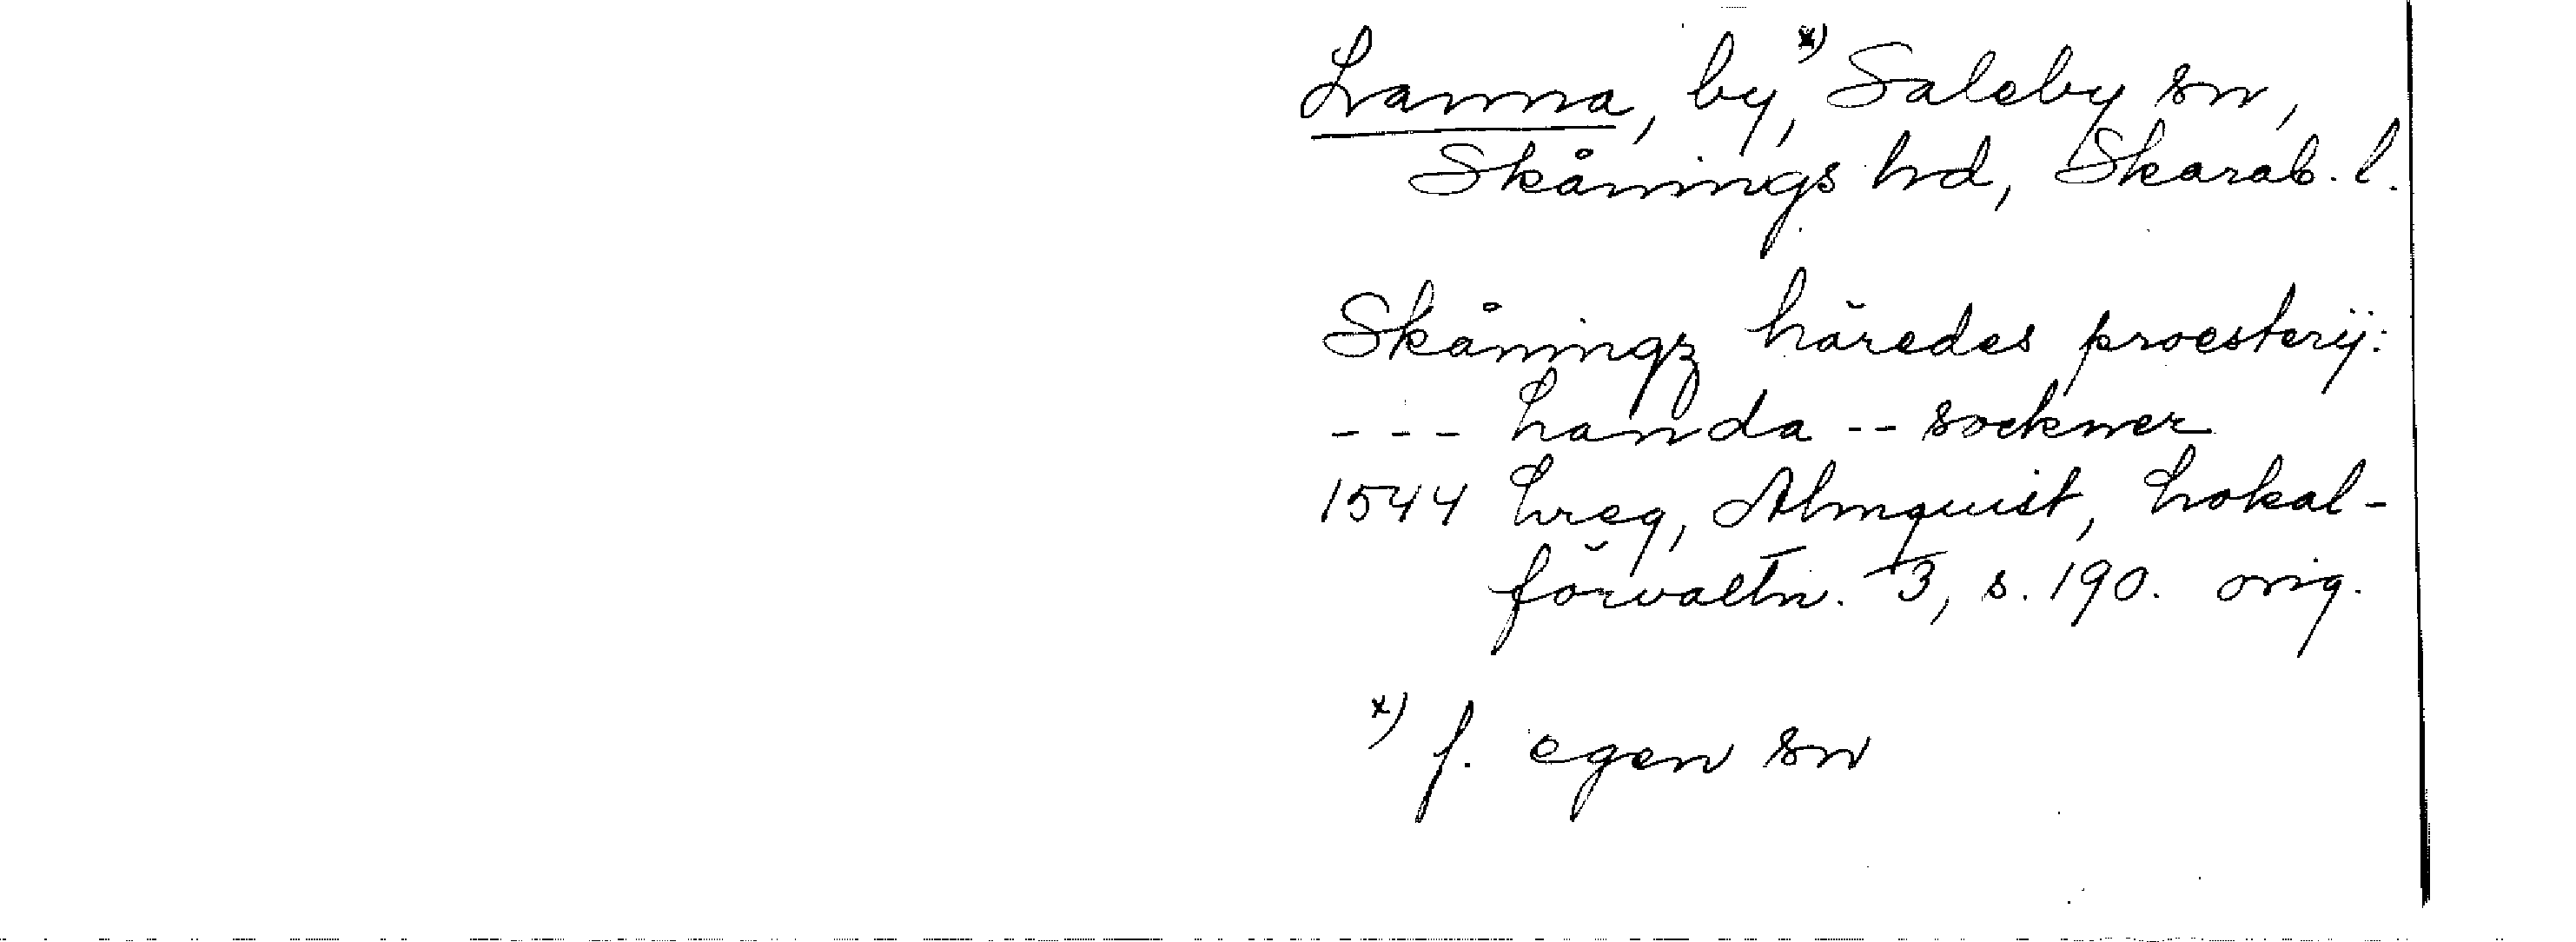 Lanna, by,x) Saleby sn,
Skånings hd, Skarab. l.
Skåningz häredes proesterij:
--- Landa -- sockner
1544 Lreg, Almquist, Lokal-
förvaltn. 3, s. 190. orig.
x) f. egen sn